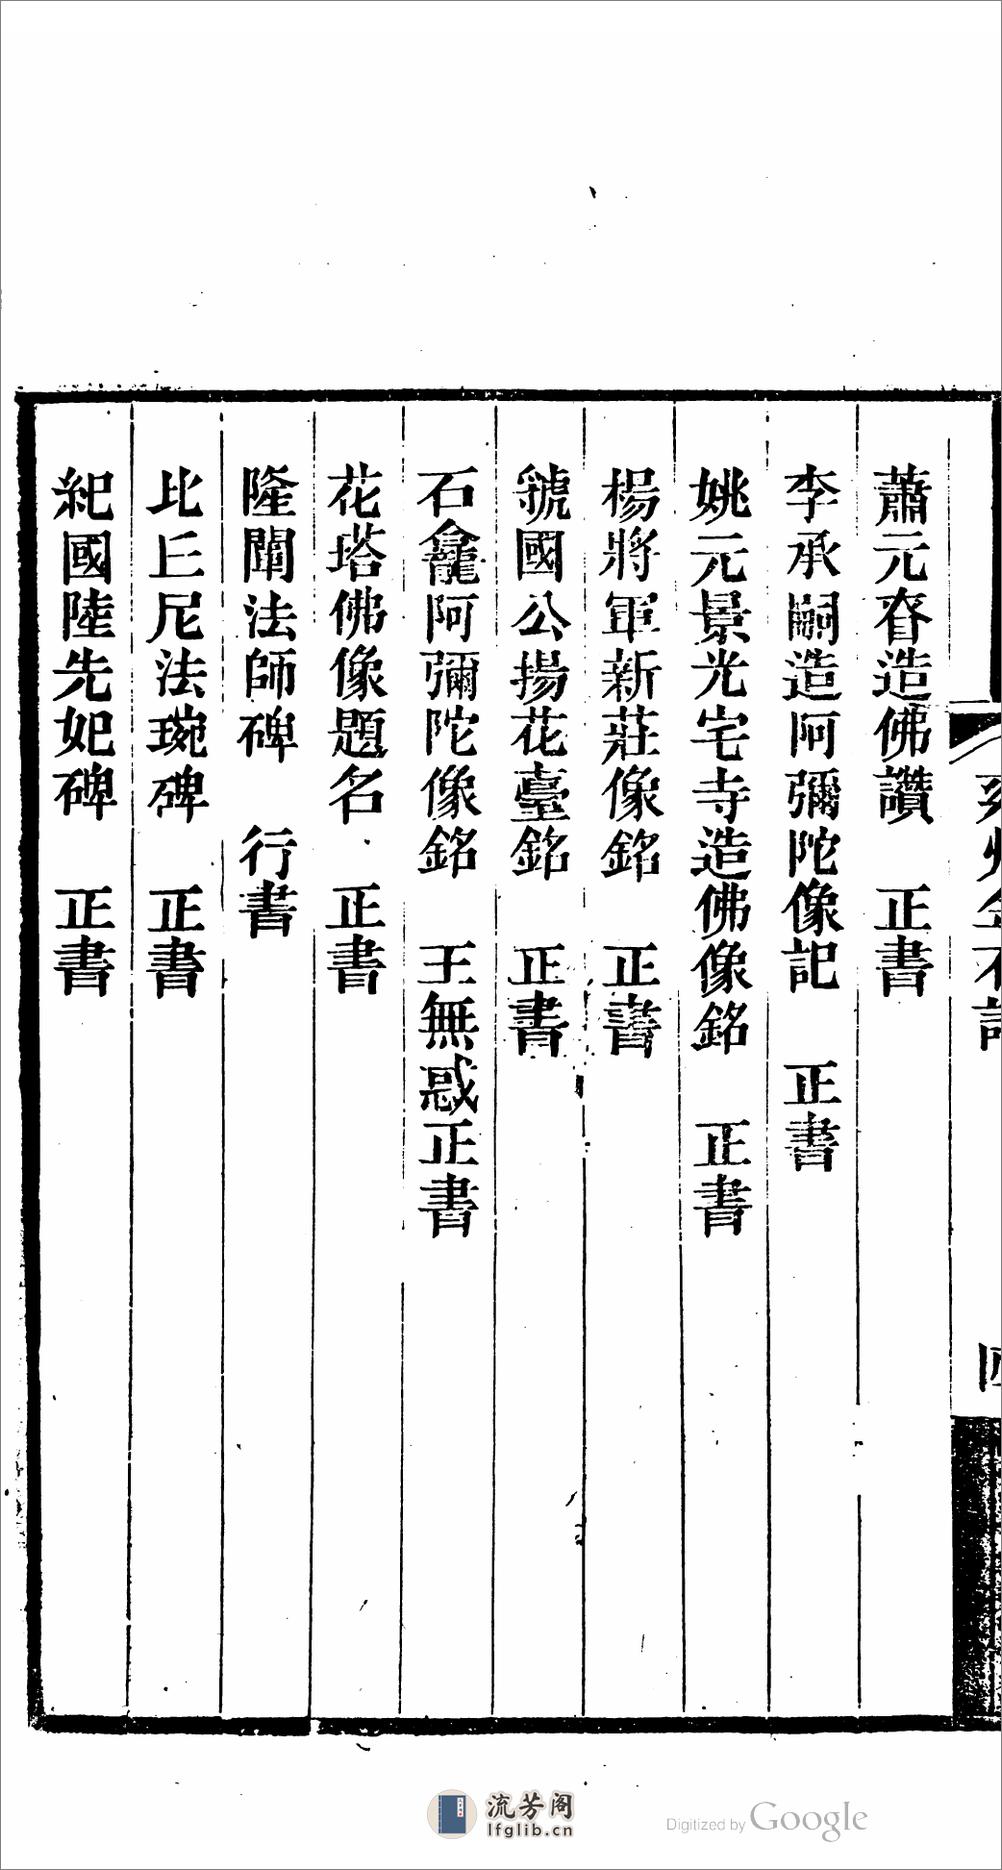 蕭元眘造佛讚　正書
李承嗣造阿彌陀像記　正書
姚元景光宅寺造佛像銘　正書
楊將軍新莊像銘　正書
虢國公揚花臺銘　正書
石龕阿彌陀像銘　王無惑正書
花塔佛像題名　正書
隆闡法師碑　行書
比丘尼法琬碑　正書
紀國陸先妃碑　正書
流芳阁
lfglib.cn
Digitized by Google